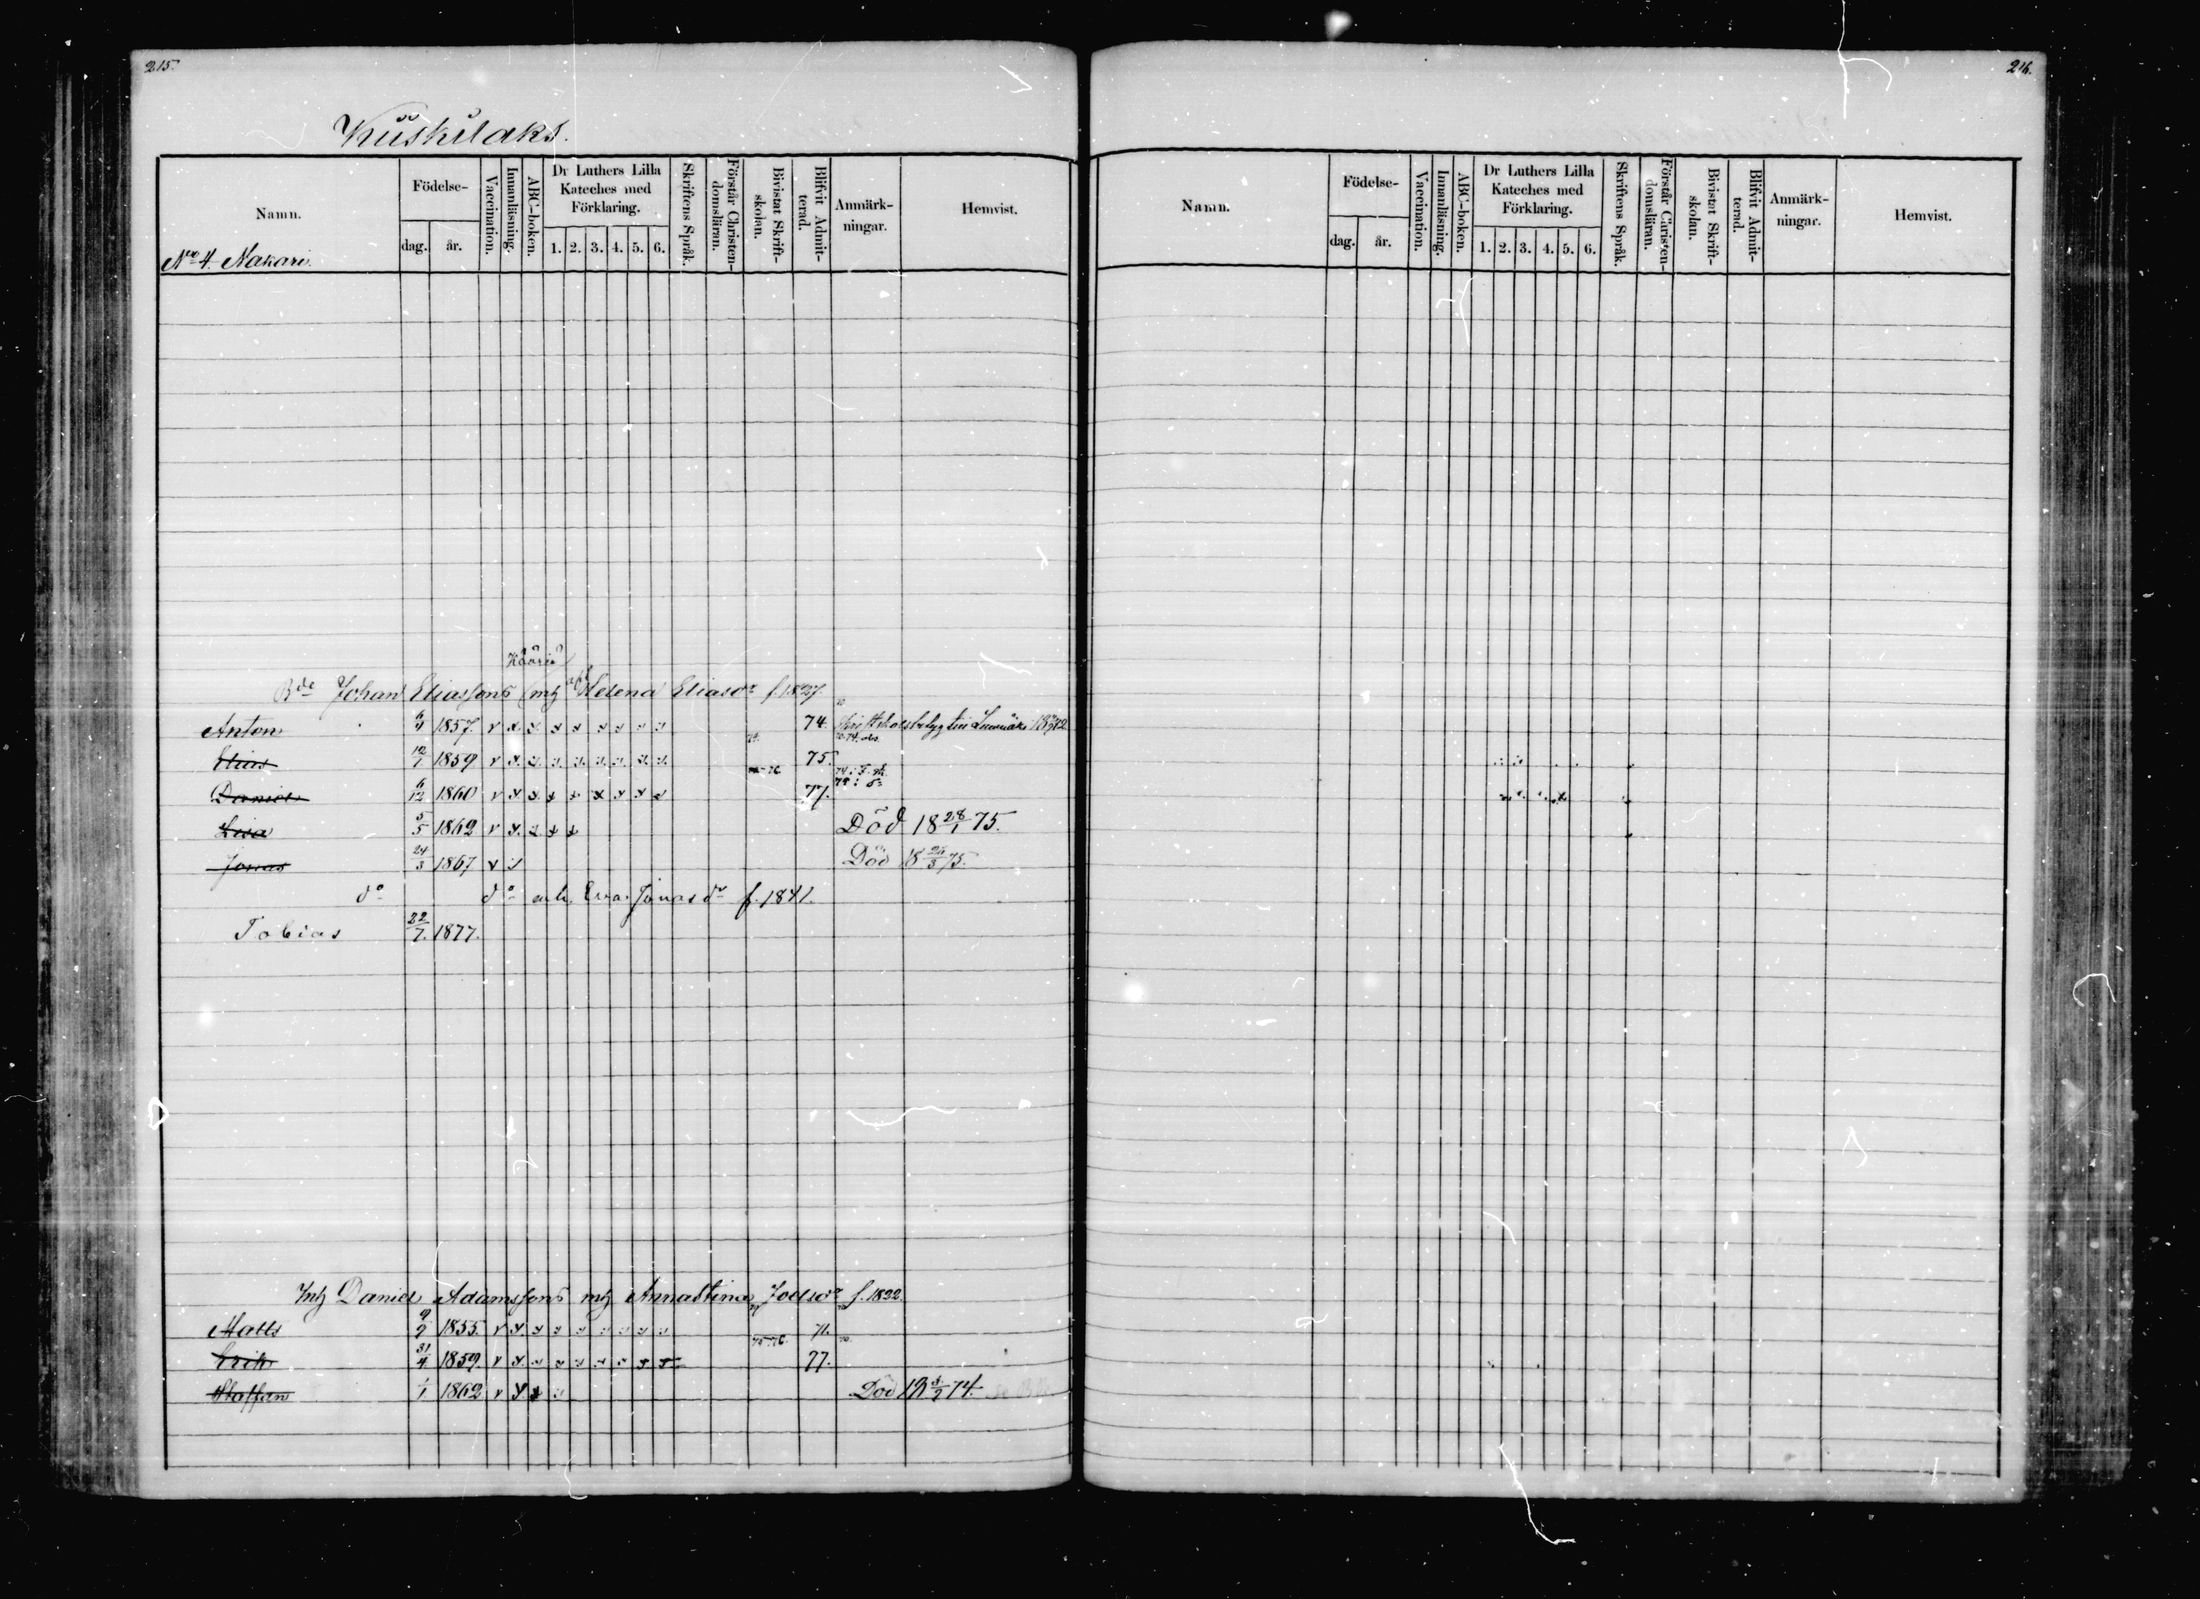 215.
Kuuskilaks.
Namn.
Födelse-
dag. år.
Vaccination.
Innanläsning.
ABC-boken.
Dr Luthers Lilla
Kateches med
Förklaring.
1. 2. 3. 4. 5. 6.
Skriftens Språk.
Förstår Christen-
domsläran.
Bivistat Skrift-
skolan.
Blifvit Admit-
terad.
Anmärk-
ningar.
Hemvist.
N:o 4. Nakari.
Bde Johan Eliassons mh Helena Eliasdr f. 1827.
Anton 6/4 1857. v x x x x x x x x 74.
74.
Elias 12/7 1859 v x x x x x x x x 75.
Daniel 6/12 1860 v x x x x x x x x 77.
Lisa 5/5 1862 v x x x x Död 18 28/1 75.
Jonas 24/3 1867 v Död 18 26/3 75.
do do Eva Jonasdr f. 1841.
Tobias 22/7. 1877.
Daniel Adamssons mh Annastina Joelsdr f. 1822.
Matts 9/9 1855. v x x x x x x x x 71.
75-76.
Erik 31/4 1859. v x x x x x x x x 77.
Staffan 1/1 1862 v x x Död 18 3/2 74.
216.
Namn.
Födelse-
dag. år.
Vaccination.
Innanläsning.
ABC-boken.
Dr Luthers Lilla
Kateches med
Förklaring.
1. 2. 3. 4. 5. 6.
Skriftens Språk.
Förstår Christen-
domsläran.
Bivistat Skrift-
skolan.
Blifvit Admit-
terad.
Anmärk-
ningar.
Hemvist.